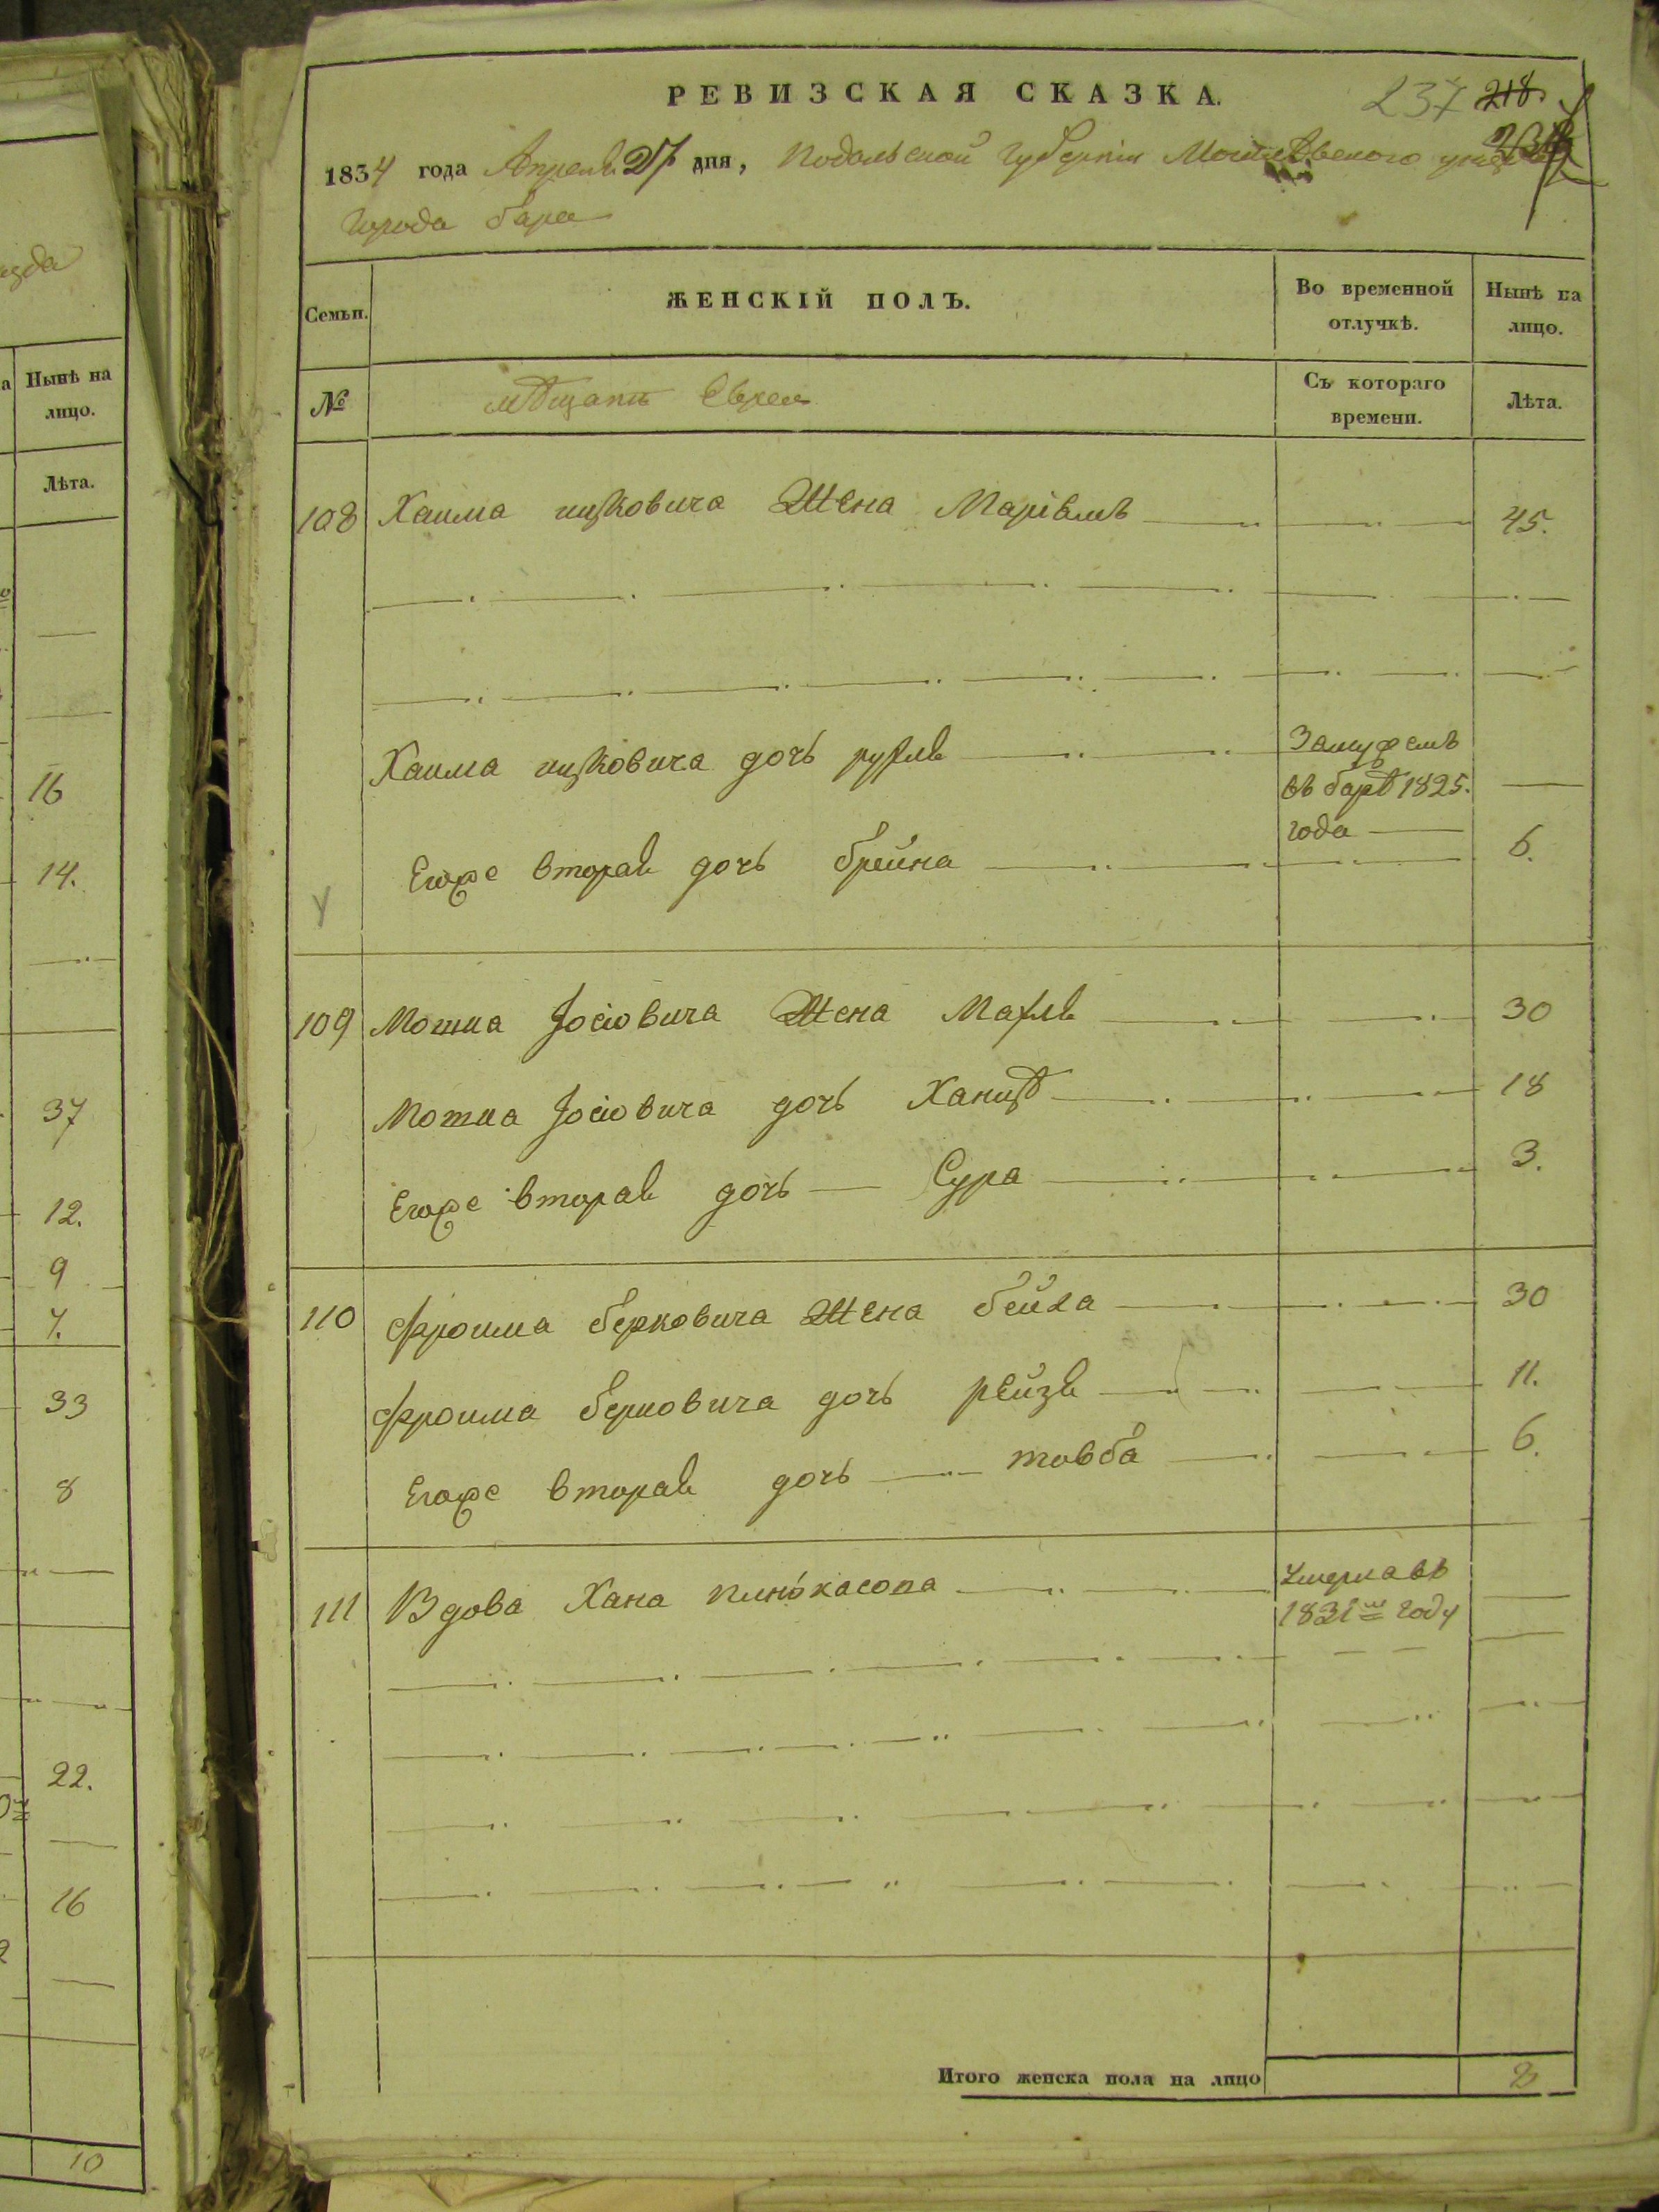 изда
а Нынѣ на
лицо.
Лѣта.
16
14.
37
12.
9
7.
33
8
22.
16
10
РЕВИЗСКАЯ СКАЗКА.
237 218
1834 года Апреля 27 дня, Подольской Губерніи Могилевского уезда
Города бара
Семьи.
ЖЕНСКІЙ ПОЛЪ.
Во временной отлучкѣ.
Нынѣ на лицо.
№
мѣщане Евреи
Съ котораго времени.
Лѣта.
108 Хаима ицковича Жена Маріемъ 45.
Хаима ицковича дочь рухля Замужемъ
въ барѣ 1825.
года
Егоже вторая дочь брейна 6.
109 Мошка Іосіовича Жена Махля 30
Мошка Іосіовича дочь Ханцѣ 18
Егоже вторая дочь Сура 3.
110 Фроима берковича Жена бейла 30
Фроима берковича дочь рейзя 11.
Егоже вторая дочь товба 6.
111 Вдова Хана Умерла въ
1831ᵐ году
Итого женска пола на лицо 8